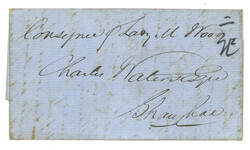 Consignee p Lady M Wood
Charles Waters Esqre
Shanghae